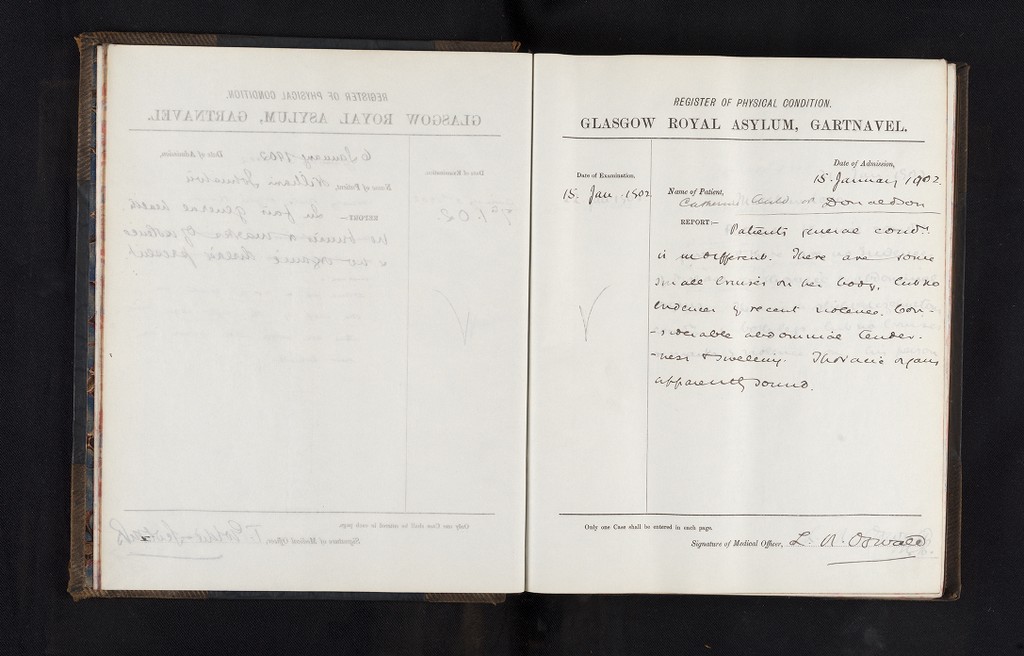 REGISTER OF PHYSICAL CONDITION.
GLASGOW ROYAL ASYLUM, GARTNAVEL.
Date of Examination.
15. Jan. 1902
Date of Admission,
15. January 1902.
Name of Patient,
Catherine Auld or Donaldson
REPORT:— Patients general condn.
is indifferent. There are some
small bruises on her body, but no
evidences of recent violence. Con-
-siderable abdominal tender-
-ness & swelling. Thoracic organs
apparently sound.
Only one Case shall be entered in each page.
Signature of Medical Officer, L. R. Oswald